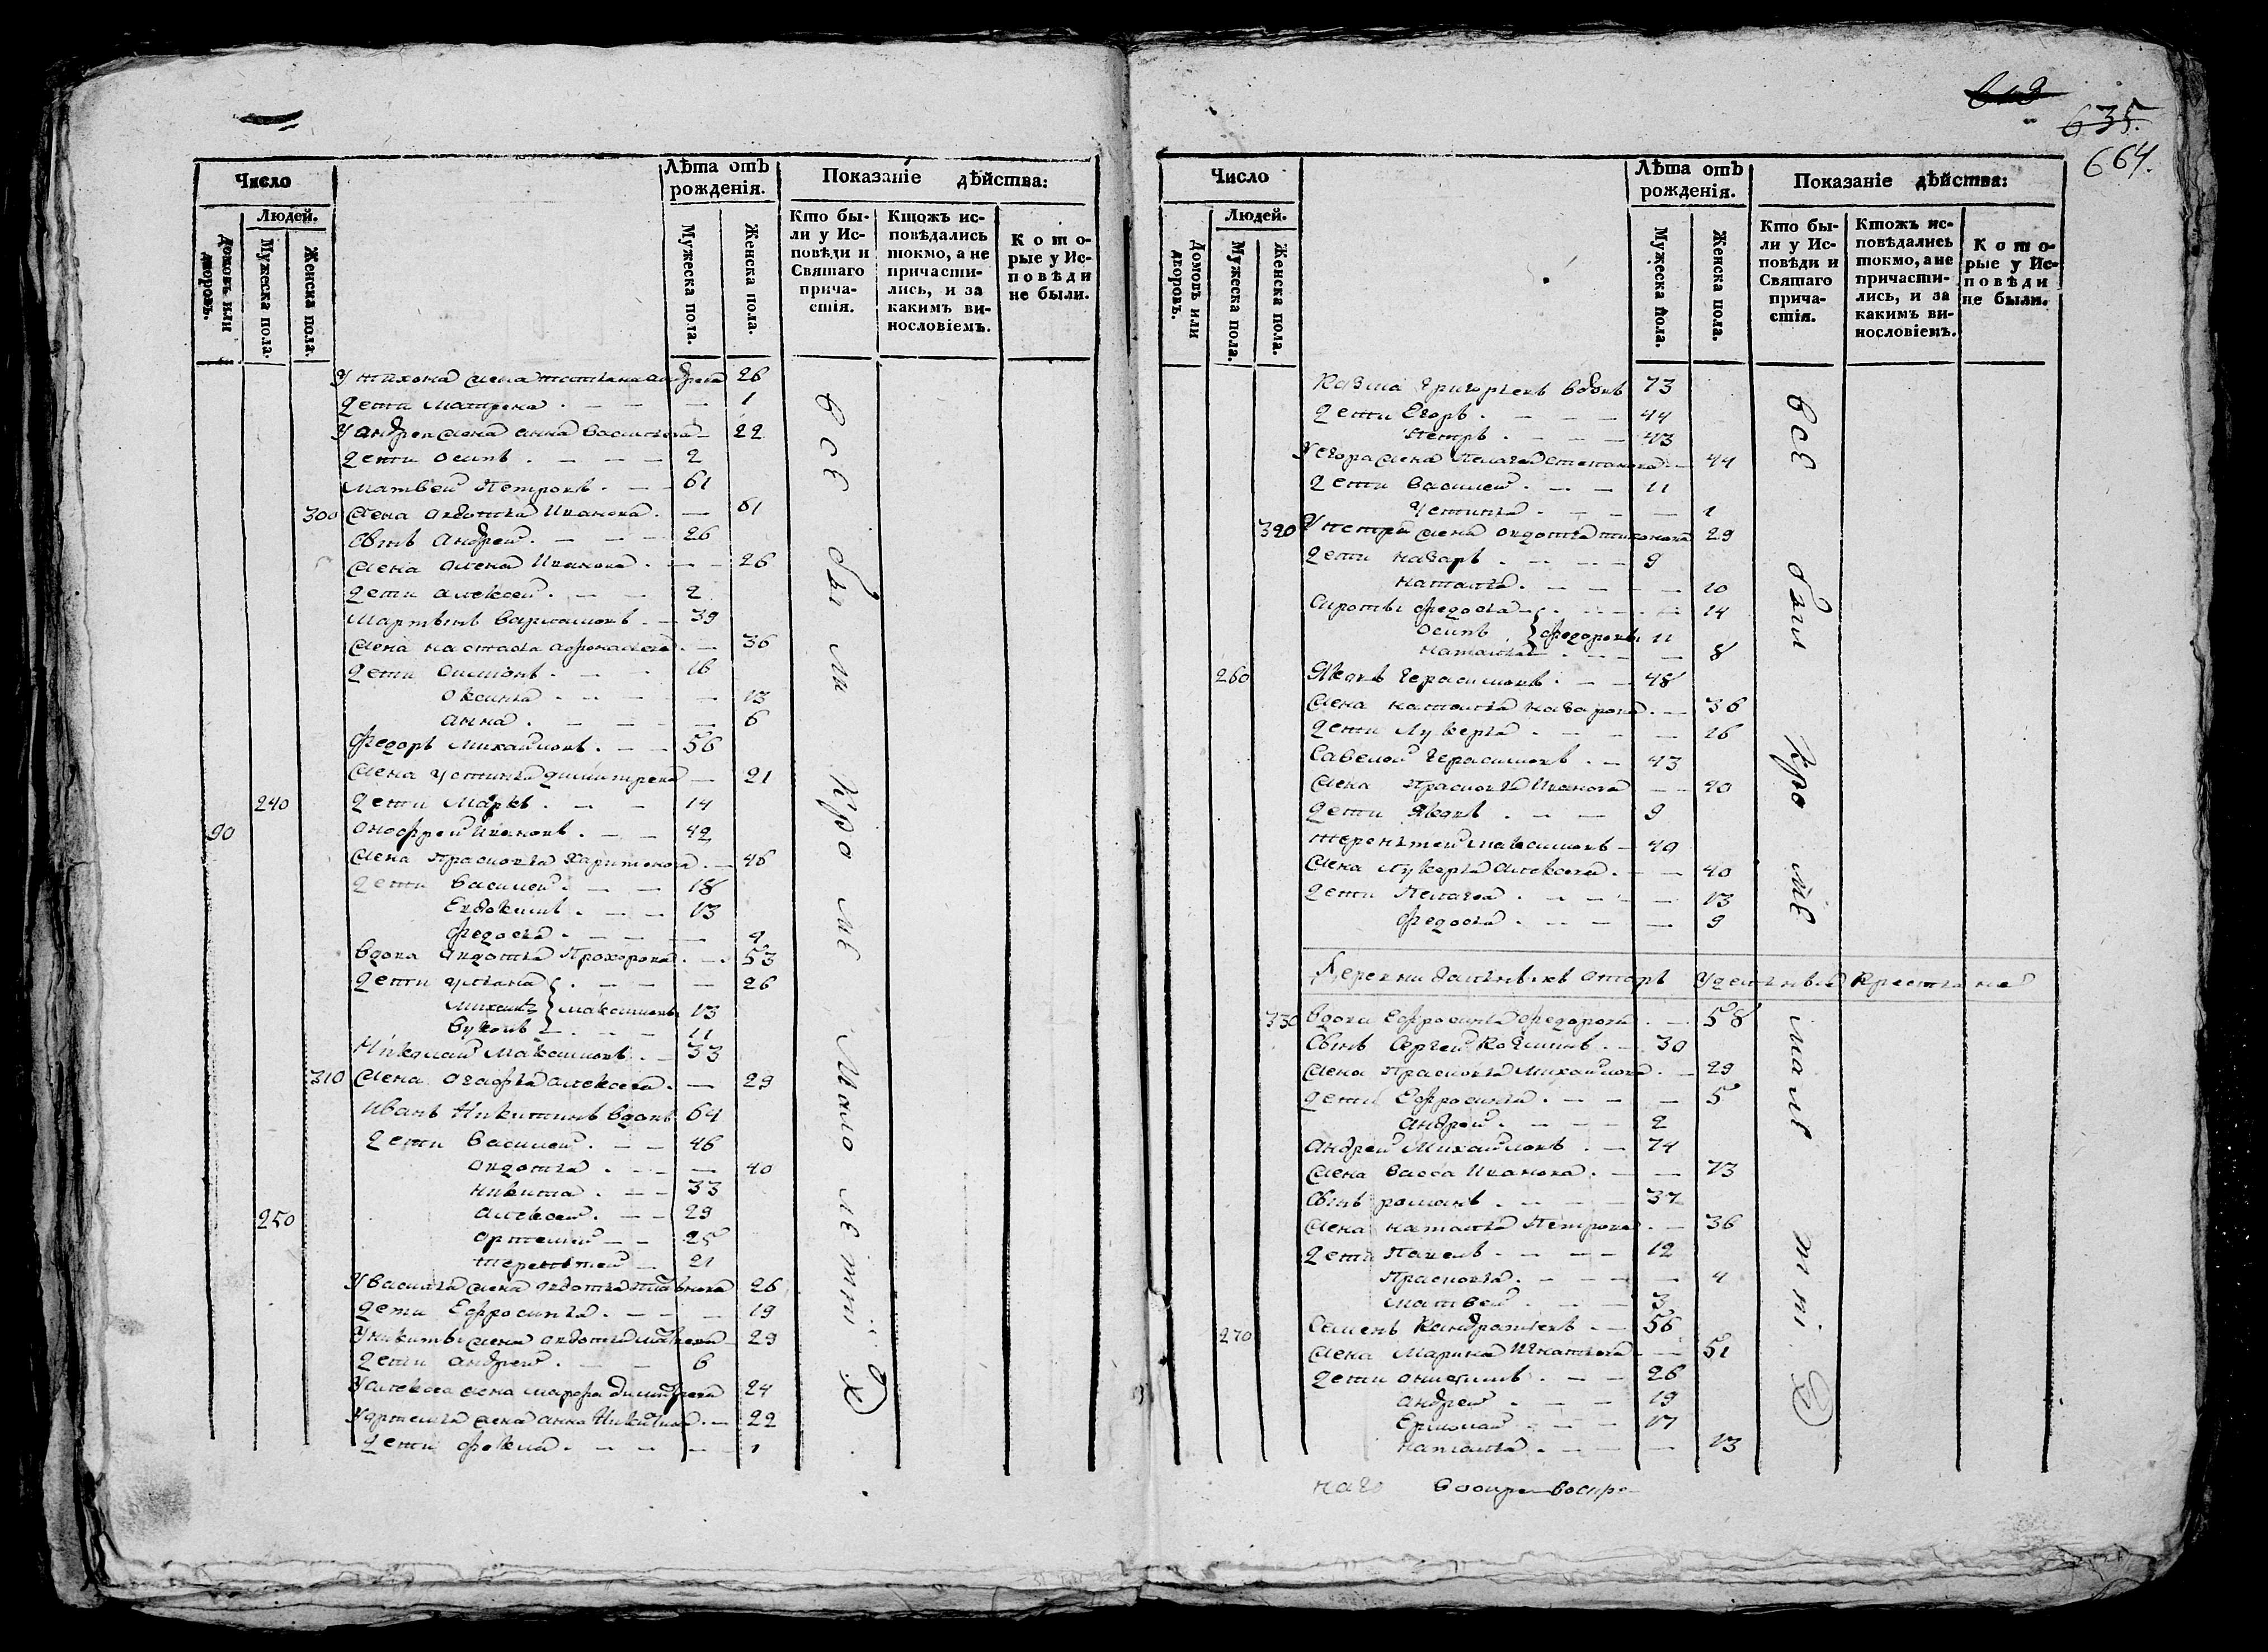 635.
664.
Число
Лѣта отъ рожденія.
Показаніе дѣйства:
Людей.
Домовъ или дворовъ.
Мужеска пола.
Женска пола.
Мужеска пола.
Женска пола.
Кто бы-
ли у Ис-
повѣди и
Святаго
прича-
стія.
Ктожъ ис-
повѣдались
токмо, а не
причасти-
лись, и за
какимъ ви-
нословіемъ.
Кото-
рые у Ис-
повѣди
не были.
У тихона жена татьяна андреева 26
дети матрена 1
У андрея жена анна васильева 22
дети осипъ 2
матвей Петровъ 61
300 жена овдотья Иванова 61
сынъ андрей 26
жена алена Иванова 26
дети алексей 2
мартынъ варламовъ 39
жена настасья афонасьева 36
дети симіонъ 16
оксинья 13
анна 6
федоръ михайловъ 56
жена устинья димитрева 21
240 дети маркъ 14
90 онофрей Ивановъ 42
жена Прасковья харитонова 46
дети василей 18
Евдокимъ 13
федосья 9
вдова овдотья Прохорова 53
дети ульяна 26
михаилъ максимовы 13
вуколъ 11
Николай максимовъ 33
310 жена огафья алексеева 29
Иванъ Никитинъ вдовъ 64
дети василей 46
овдотья 40
никита 33
250 алексей 29
ортемей 25
терентей 21
У василья жена овдотья 26
дети Ефросинья 19
У никиты жена овдотья 29
дети андрей 6
У алексея жена марфа димитрева 24
У ортемья жена анна Никитина 22
дети фокла 1
всѣ были кромѣ малолѣтні
Число
Лѣта отъ рожденія.
Показаніе дѣйства:
Людей.
Домовъ или дворовъ.
Мужеска пола.
Женска пола.
Мужеска пола.
Женска пола.
Кто бы-
ли у Ис-
повѣди и
Святаго
прича-
стія.
Ктожъ ис-
повѣдались
токмо, а не
причасти-
лись, и за
какимъ ви-
нословіемъ.
Кото-
рые у Ис-
повѣди
не были.
козма григорьевъ вдовъ 73
дети Егоръ 44
Петръ 43
У егора жена Пелагея степанова 44
дети василей 11
устинья 1
320 У петра жена овдотья тихонова 29
дети назаръ 9
наталья 10
сироты федосья 14
осипъ федоровы 11
наталья 8
260 яковъ герасимовъ 48
жена наталья назарова 36
дети лукерья 16
савелей герасимовъ 43
жена Прасковья Иванова 40
дети яковъ 9
терентей максимовъ 40
жена лукерья алексеева 40
дети Пелагея 13
федосья 9
Деревни удельныя крестьяне
330 вдова Ефросинья федорова 58
сынъ сергей козминъ 30
жена Прасковья михайлова 29
дети Ефросинья 5
андрей 2
андрей михайловъ 74
жена васса Иванова 73
сынъ романъ 37
жена наталья Петрова 36
дети Павелъ 12
Прасковья 4
матвей 3
270 семенъ кондратьевъ 56
жена марина Игнатьева 51
дети онисимъ 26
андрей 19
Ермолай 17
наталья 13
всѣ были кромѣ малѣтні